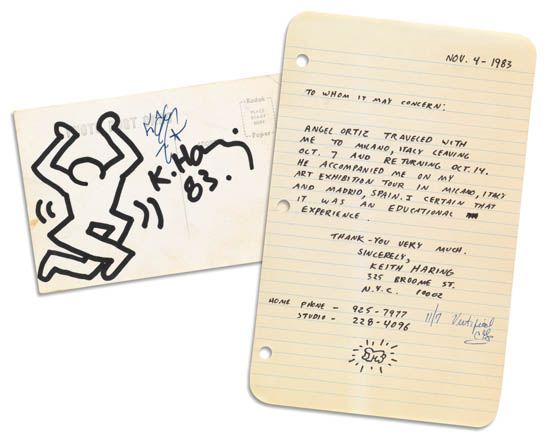 K. Haring
83.
Kodak
Paper
NOV. 4 - 1983
TO WHOM IT MAY CONCERN:
ANGEL ORTIZ TRAVELED WITH
ME TO MILANO, ITALY LEAVING
OCT. 7 AND RETURNING OCT. 14.
HE ACCOMPANIED ME ON MY
ART EXHIBITION TOUR IN MILANO, ITALY
AND MADRID, SPAIN. I CERTAIN THAT
IT WAS AN EDUCATIONAL
EXPERIENCE.
THANK-YOU VERY MUCH.
SINCERELY,
KEITH HARING
325 BROOME ST.
N.Y.C. 10002
HOME PHONE - 925-7977
STUDIO - 228-4096
11/7